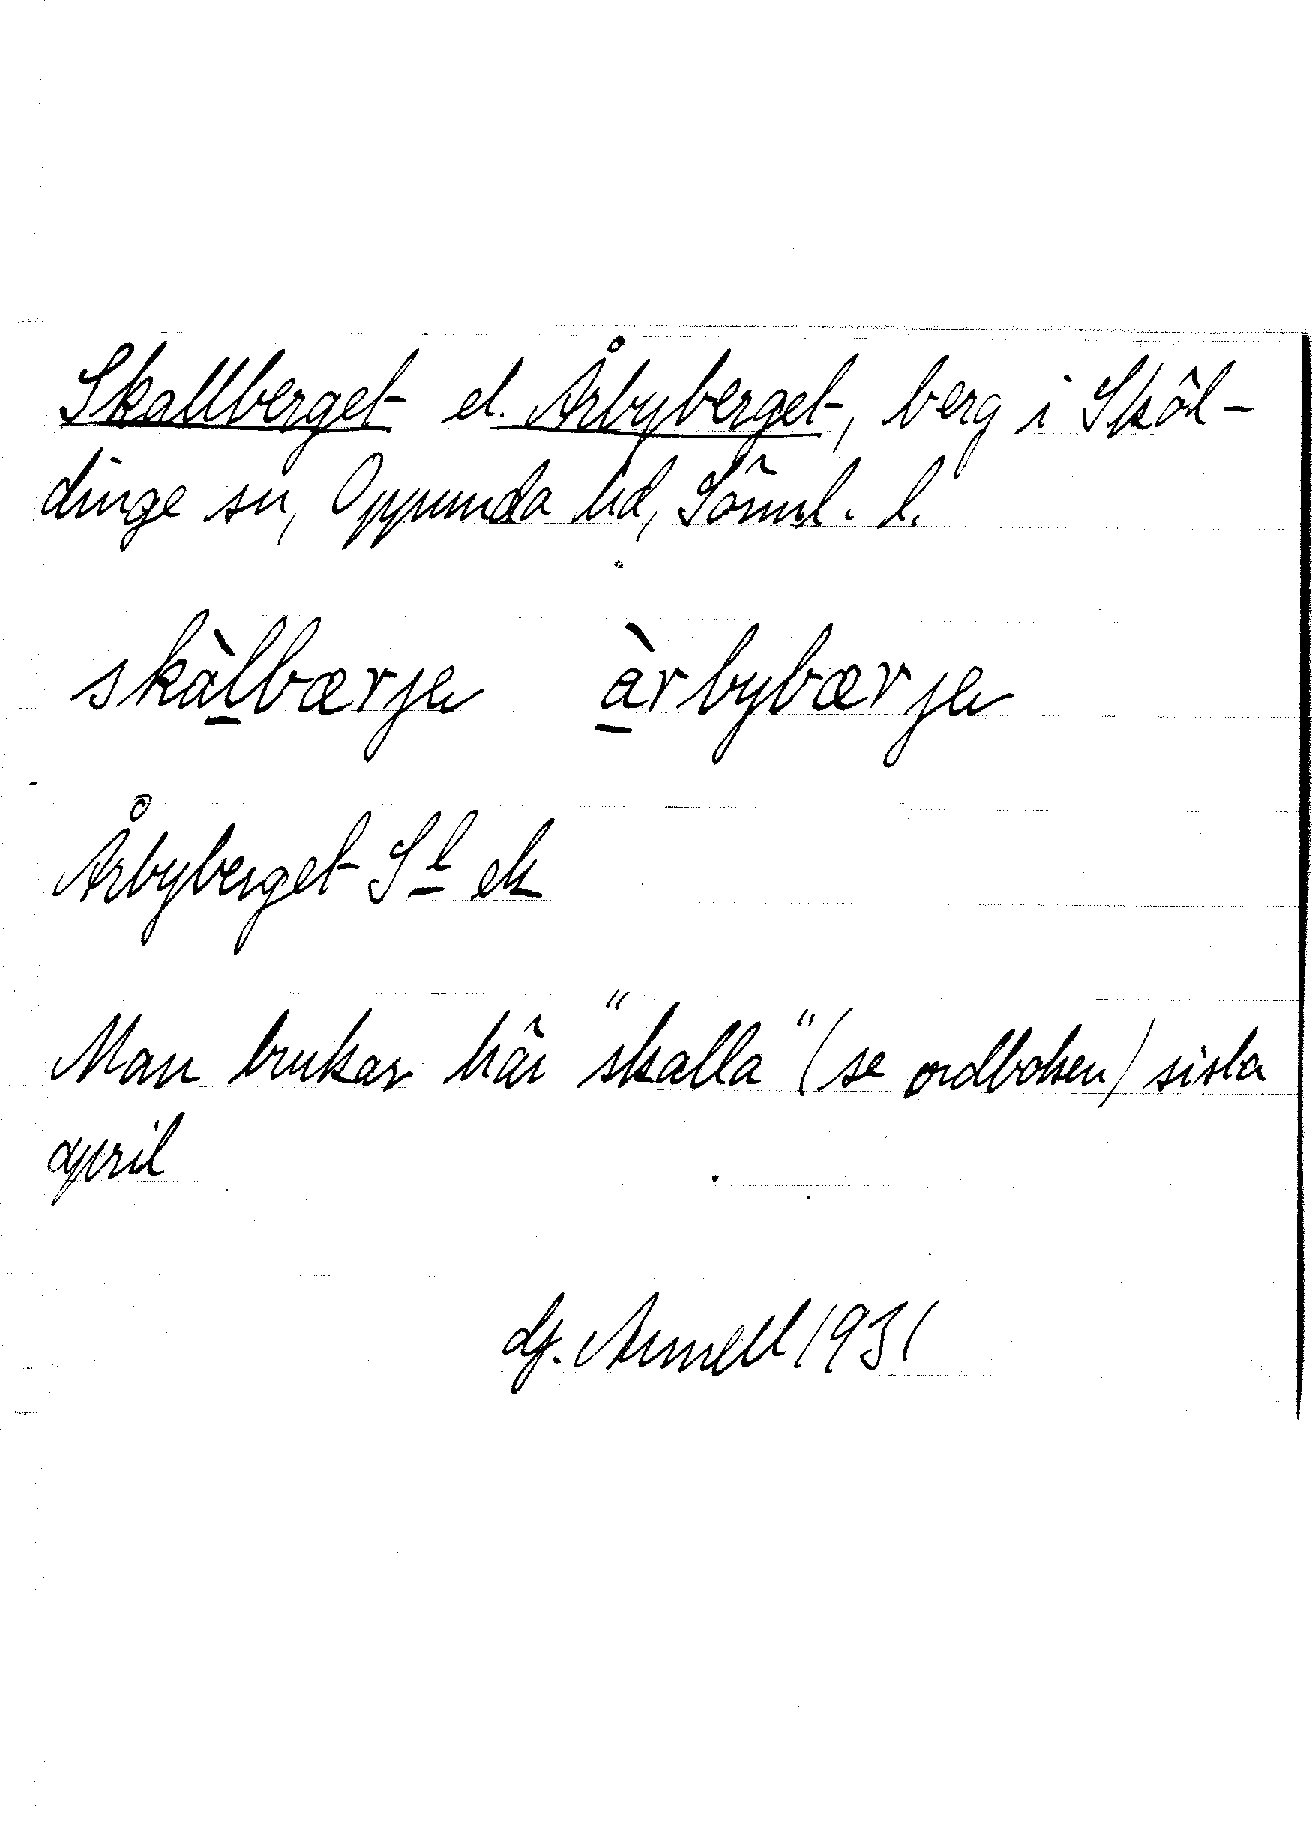 Skallberget el. Årbyberget, berg i Sköl-
dinge sn, Oppunda hd, Söml. l.
skàlbærje àrbybærje
Årbyberget Sl ek
Man brukar här "skalla" (se ordboken) sista
april
Arnell 1931